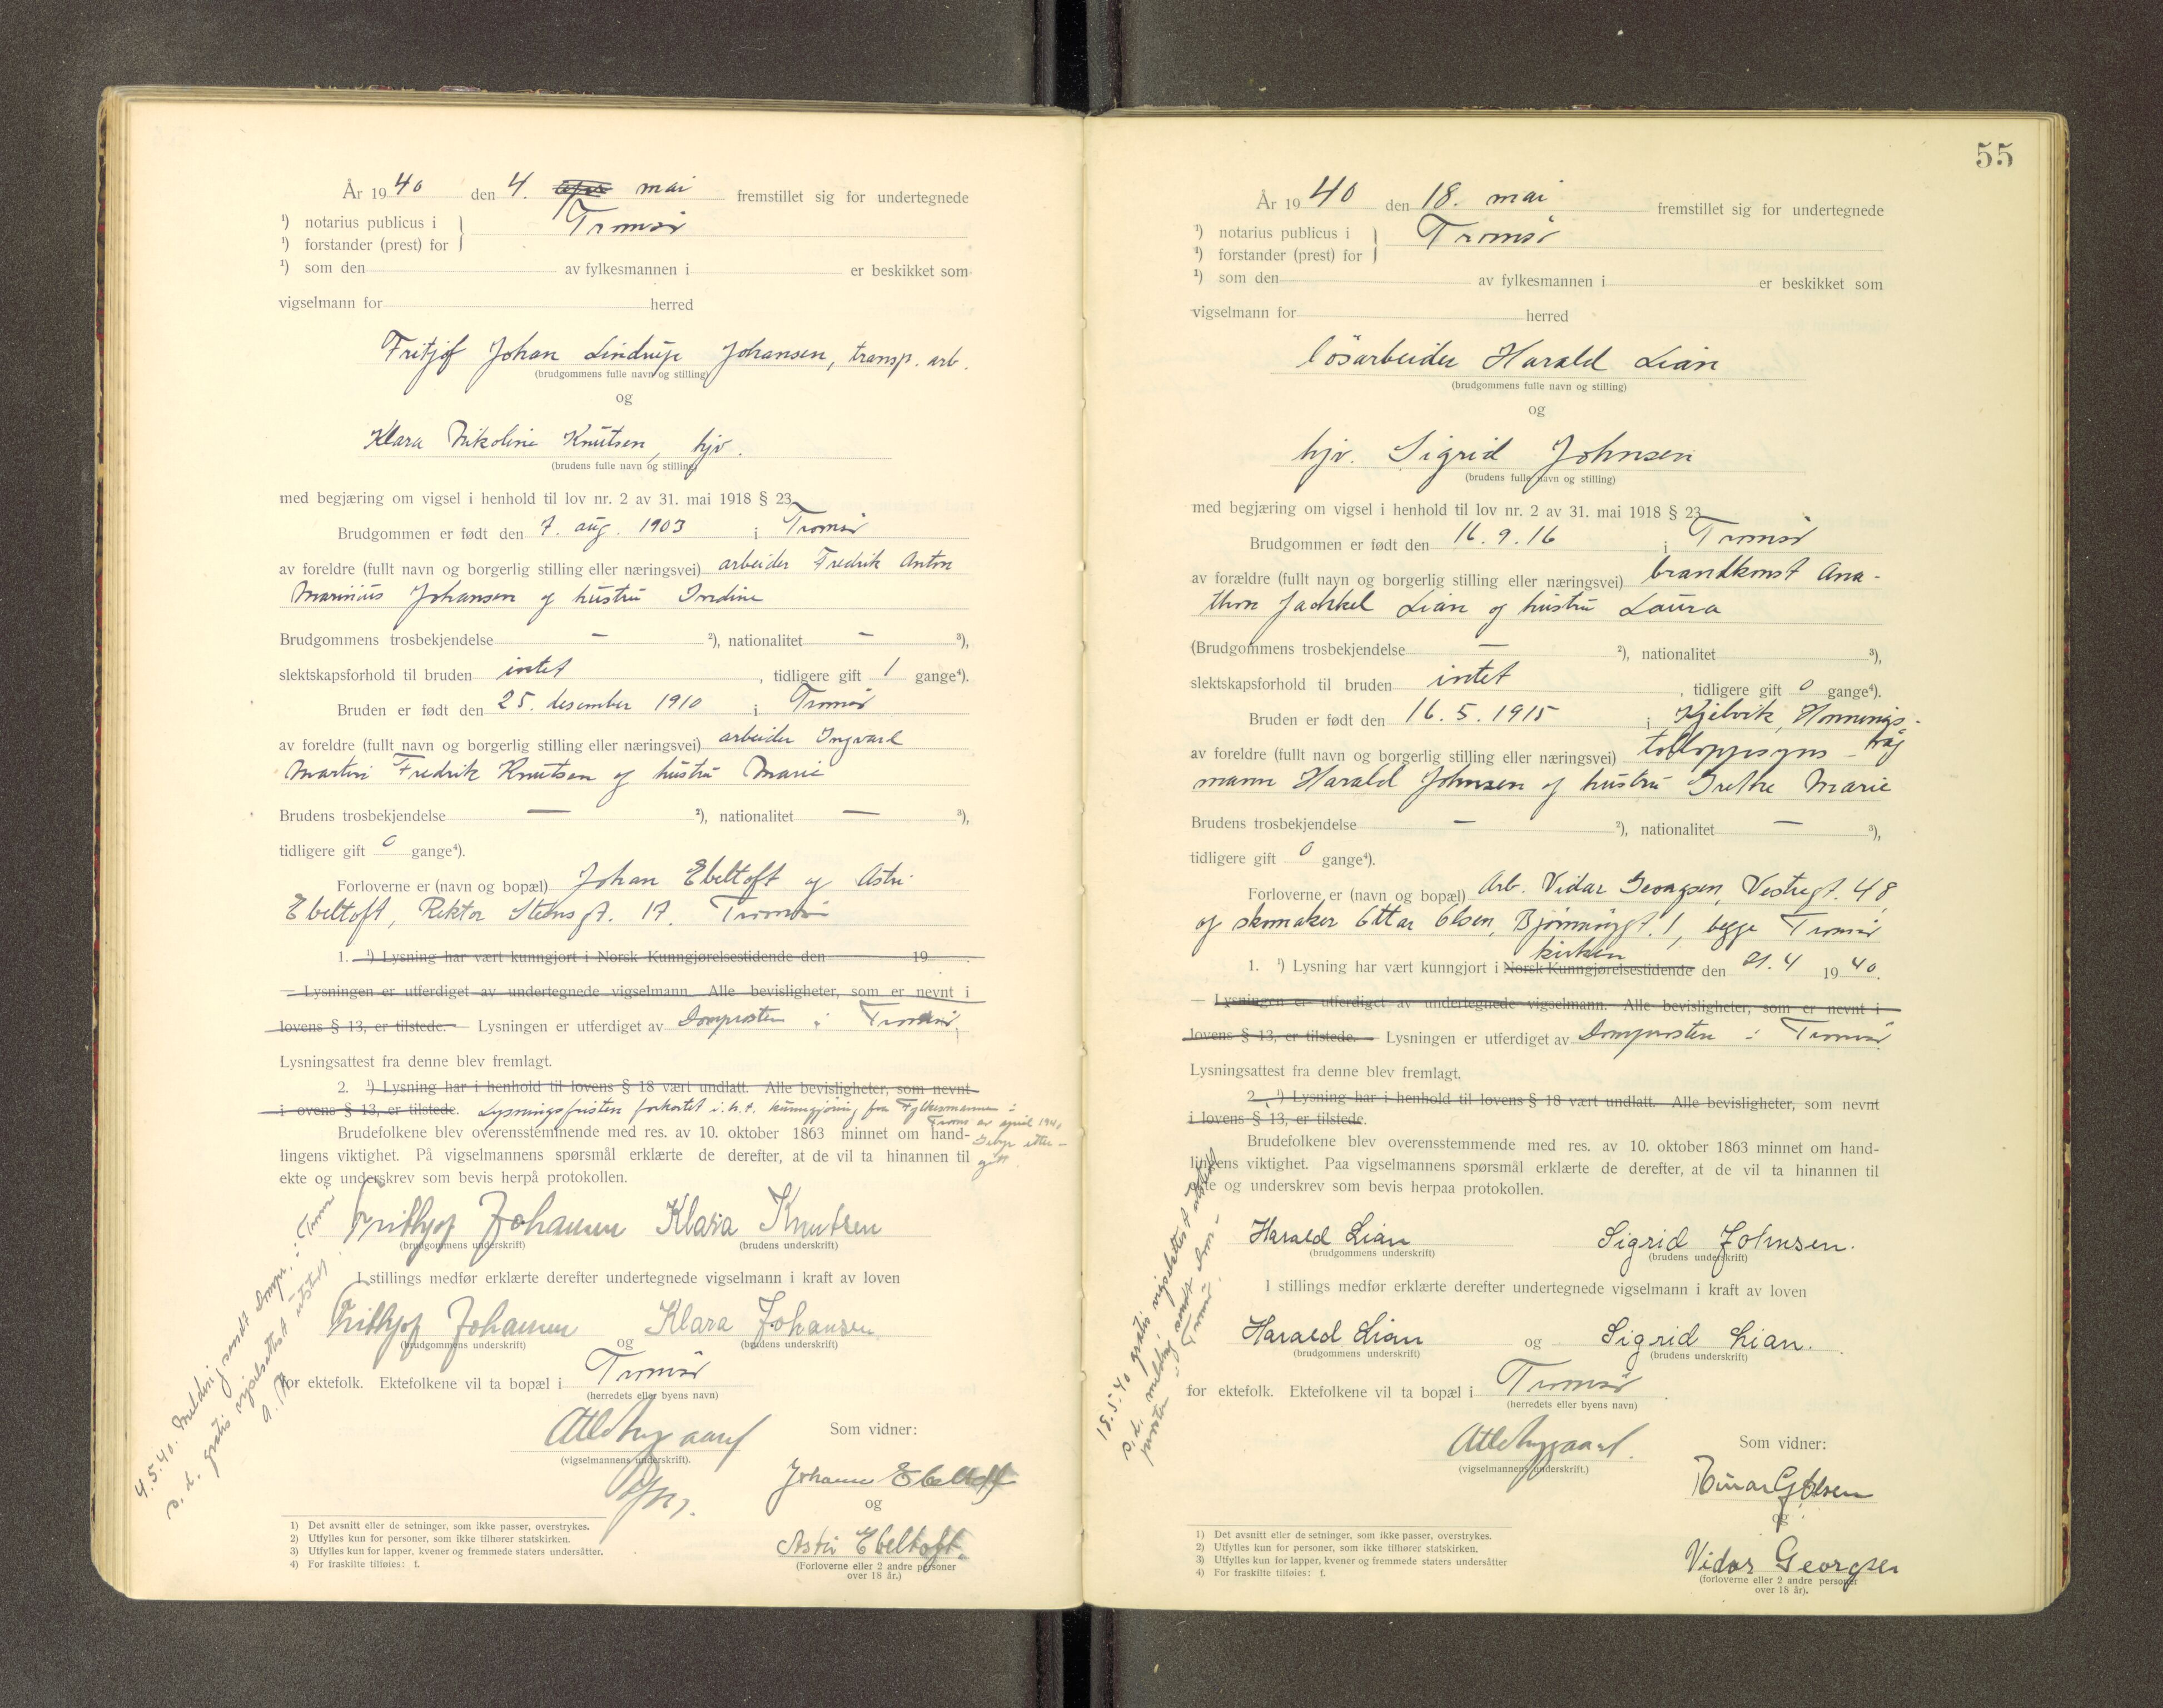 År 1940 den 4. apr mai fremstillet sig for undertegnede
¹) notarius publicus i } Tromsø
¹) forstander (prest) for
¹) som den av fylkesmannen i er beskikket som
vigselmann for herred
Fritjof Johan Lindrup Johansen, transp. arb.
(brudgommens fulle navn og stilling)
og
Klara Nikoline Knutsen, hjv.
(brudens fulle navn og stilling)
med begjæring om vigsel i henhold til lov nr. 2 av 31. mai 1918 § 23
Brudgommen er født den 7. aug. 1903 i Tromsø
av foreldre (fullt navn og borgerlig stilling eller næringsvei) arbeider Fredrik Anton
Marinius Johansen og hustru Indine
Brudgommens trosbekjendelse — ²), nationalitet — ³),
slektskapsforhold til bruden intet, tidligere gift 1 gange⁴).
Bruden er født den 25. desember 1910 i Tromsø
av foreldre (fullt navn og borgerlig stilling eller næringsvei) arbeider Ingvard
Martin Fredrik Knutsen og hustru Marie
Brudens trosbekjendelse — ²), nationalitet — ³),
tidligere gift 0 gange⁴).
Forloverne er (navn og bopæl) Johan Ebeltoft og Astri
Ebeltoft, Rektor Steensgt. 17. Tromsø
1. ¹) Lysning har vært kunngjort i Norsk Kunngjørelsestidende den 19 .
— Lysningen er utferdiget av undertegnede vigselmann. Alle bevisligheter, som er nevnt i
lovens § 13, er tilstede. — Lysningen er utferdiget av Domprosten i Tromsø,
Lysningsattest fra denne blev fremlagt.
2. ¹) Lysning har i henhold til lovens § 18 vært undlatt. Alle bevisligheter, som nevnt
i ovens § 13, er tilstede. Lysningsfristen forkortet i.h.t. kunngjøring fra Fylkesmannen i
Troms av april 1940
Gebyr etter-
gitt.
Brudefolkene blev overensstemmende med res. av 10. oktober 1863 minnet om hand-
lingens viktighet. På vigselmannens spørsmål erklærte de derefter, at de vil ta hinannen til
ekte og underskrev som bevis herpå protokollen.
Frithjof Johansen Klara Knutsen
(brudgommens underskrift) (brudens underskrift)
I stillings medfør erklærte derefter undertegnede vigselmann i kraft av loven
Frithjof Johansen og Klara Johansen
(brudgommens underskrift) (brudens underskrift)
for ektefolk. Ektefolkene vil ta bopæl i Tromsø
(herredets eller byens navn)
(vigselmannens underskrift).
Som vidner:
Johan Ebeltoft
og
Astri Ebeltoft.
(Forloverne eller 2 andre personer
over 18 år.)
4.5.40. Melding sendt Dompr. i Tromsø
s.d. gratis vigselsattest utstedt.
1) Det avsnitt eller de setninger, som ikke passer, overstrykes.
2) Utfylles kun for personer, som ikke tilhører statskirken.
3) Utfylles kun for lapper, kvener og fremmede staters undersåtter.
4) For fraskilte tilføies: f.
55
År 1940 den 18. mai fremstillet sig for undertegnede
¹) notarius publicus i } Tromsø
¹) forstander (prest) for
¹) som den av fylkesmannen i er beskikket som
vigselmann for herred
løsarbeider Harald Lian
(brudgommens fulle navn og stilling)
og
hjv. Sigrid Johnsen
(brudens fulle navn og stilling)
med begjæring om vigsel i henhold til lov nr. 2 av 31. mai 1918 § 23
Brudgommen er født den 16.9.16 i Tromsø
av forældre (fullt navn og borgerlig stilling eller næringsvei) brandkonst Ana-
thon Lian og hustru Laura
(Brudgommens trosbekjendelse — ²), nationalitet ³),
slektskapsforhold til bruden intet, tidligere gift 0 gange⁴).
Bruden er født den 16.5.1915 i Kjelvik, Honnings-
våg
av foreldre (fullt navn og borgerlig stilling eller næringsvei) tolloppsyns-
mann Harald Johnsen og hustru Grethe Marie
Brudens trosbekjendelse — ²), nationalitet — ³),
tidligere gift 0 gange⁴).
Forloverne er (navn og bopæl) Arb. Vidar Georgsen, Vestregt. 48
og skomaker Ottar Olsen, Bjørnøygt. 1, begge Tromsø
1. ¹) Lysning har vært kunngjort i Norsk Kunngjørelsestidende kirken den 21.4 1940.
— Lysningen er utferdiget av undertegnede vigselmann. Alle bevisligheter, som er nevnt i
lovens § 13, er tilstede. — Lysningen er utferdiget av Domprosten i Tromsø
Lysningsattest fra denne blev fremlagt.
2. ¹) Lysning har i henhold til lovens § 18 vært undlatt. Alle bevisligheter, som nevnt
i lovens § 13, er tilstede.
Brudefolkene blev overensstemmende med res. av 10. oktober 1863 minnet om hand-
lingens viktighet. Paa vigselmannens spørsmål erklærte de derefter, at de vil ta hinannen til
ekte og underskrev som bevis herpaa protokollen.
Harald Lian Sigrid Johnsen.
(brudgommens underskrift) (brudens underskrift)
I stillings medfør erklærte derefter undertegnede vigselmann i kraft av loven
Harald Lian og Sigrid Lian.
(brudgommens underskrift) (brudens underskrift)
for ektefolk. Ektefolkene vil ta bopæl i Tromsø
(herredets eller byens navn)
(vigselmannens underskrift.)
Som vidner:
Olsen
og
Vidar Georgsen
(forloverne eller 2 andre personer
over 18 år).
18.5.40 gratis vigselattest utstedt
s.d. melding sendt Dom-
prosten i Tromsø.
1) Det avsnitt eller de setninger, som ikke passer, overstrykes.
2) Utfylles kun for personer, som ikke tilhører statskirken.
3) Utfylles kun for lapper, kvener og fremmede staters undersåtter
4) For fraskilte tilføies: f.